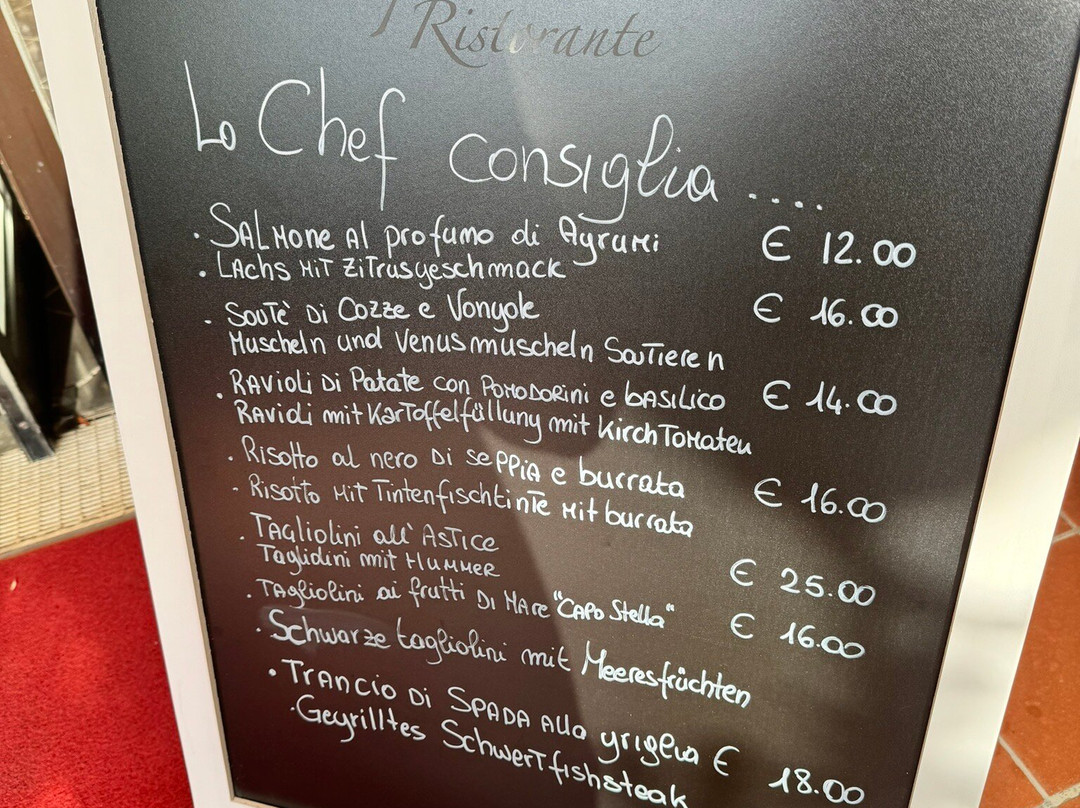 Ristorante
Lo Chef consiglia ....
. SALMONE Al profumo di Agrumi € 12.00
. LACHS MiT ZiTrusgeschmack
. SOUTÈ Di Cozze e Vongole € 16.00
Muscheln und Venusmuscheln SauTieren
. RAVioli Di Patate con POMODORini e bASiLiCO € 14.00
RAVioli mit KarToffelfüllung mit KirchTomaTen
. Risotto al nero Di sePPiA e burrata € 16.00
- Risotto MiT TintenfischtinTe Mit burrata
. TAgliolini all' ASTiCE € 25.00
Tagliolini mit HUMMER
. TAgliolini ai frutti Di MAre "CAPO Stella" € 16.00
. Schwarze tagliolini mit Meeresfrüchten
. TRANCiO Di SPADA Alla griglia € 18.00
. Gegrilltes SchwerTfishsteak